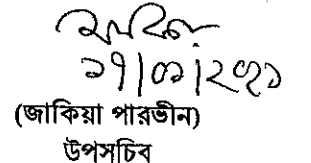 ১৭|০১|২০২১
(জাকিয়া পারভীন)
উপসচিব